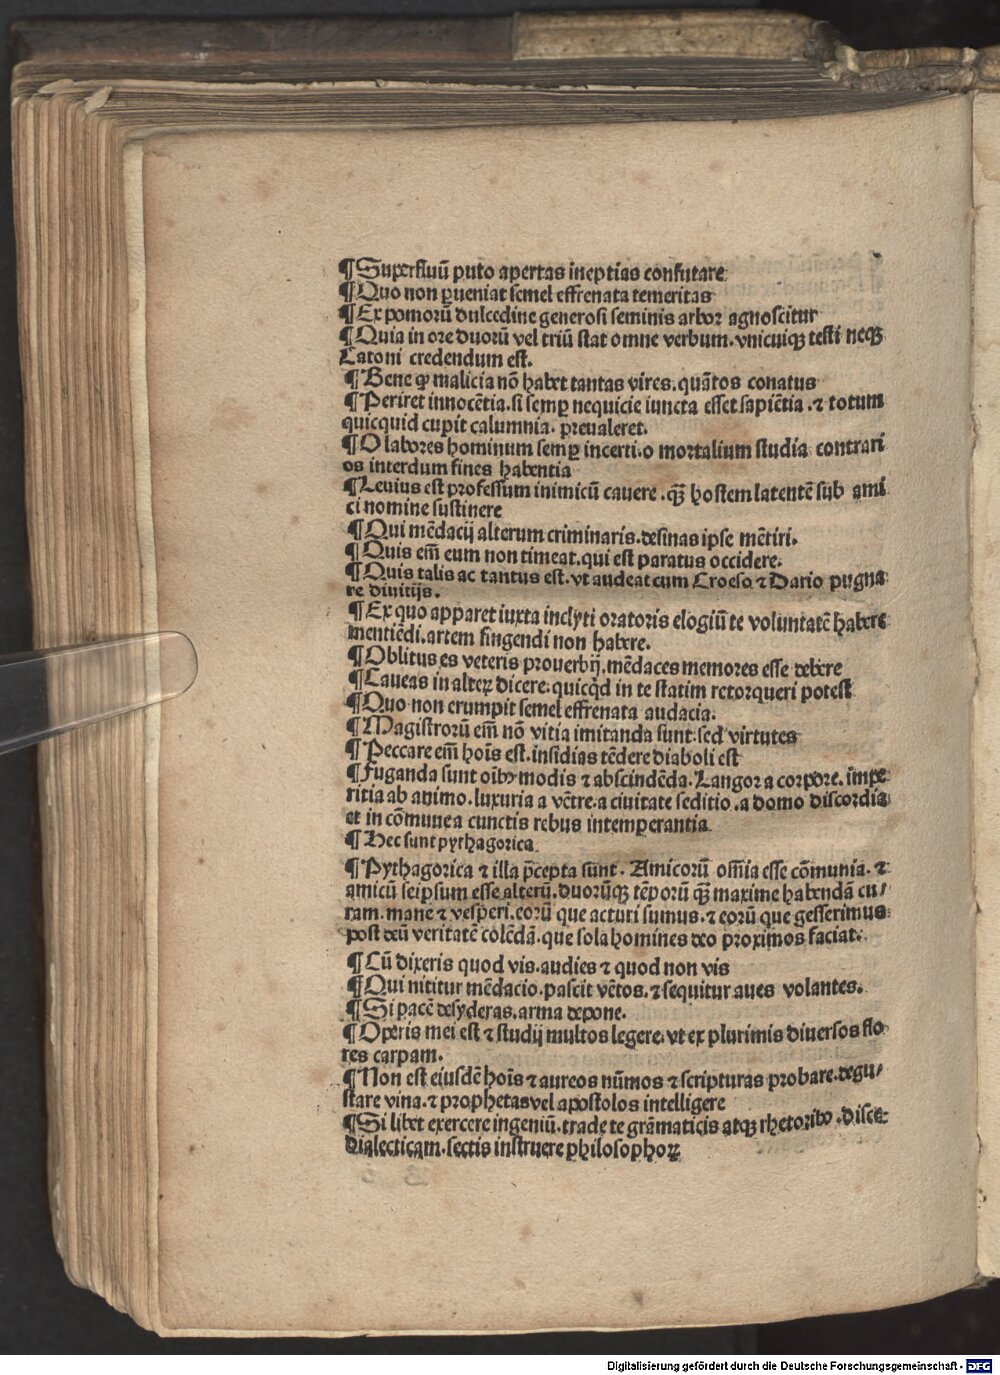 ¶Superfluū puto apertas ineptias confutare
¶Quo non ꝑueniat semel effrenata temeritas
¶Ex pomorū dulcedine generosi seminis arbor agnoscitur
¶Quia in ore duorū vel triū stat omne verbum. vnicuiqꝫ testi neqꝫ
Catoni credendum est.
¶Bene ꝙ malicia nō habet tantas vires. quātos conatus
¶Periret innocētia. si semꝑ nequicie iuncta esset sapiētia. ⁊ totum
quicquid cupit calumnia. preualeret.
¶O labores hominum semꝑ incerti. o mortalium studia contrari
os interdum fines habentia
¶Leuius est professum inimicū cauere. qꝫ̄ hostem latentē sub ami
ci nomine sustinere
¶Qui mēdacij alterum criminaris. desinas ipse mētiri.
¶Quis em̄ eum non timeat. qui est paratus occidere.
¶Quis talis ac tantus est. vt audeat cum Croeso ⁊ Dario pugna
re diuitijs.
¶Ex quo apparet iuxta inclyti oratoris elogiū te voluntatē habere
mentiēdi. artem fingendi non habere.
¶Oblitus es veteris prouerbij. mēdaces memores esse debere
¶Caueas in alteꝝ dicere. quicqd in te statim retorqueri potest
¶Quo non erumpit semel effrenata audacia.
¶Magistrorū em̄ nō vitia imitanda sunt: sed virtutes
¶Peccare em̄ hoīs est. insidias tēdere diaboli est
¶Fuganda sunt oībꝰ modis ⁊ abscindēda. Langor a corpore. impe
ritia ab animo. luxuria a vētre. a ciuitate seditio. a domo discordia
et in cōmune a cunctis rebus intemperantia
¶Hec sunt pythagorica
¶Pythagorica ⁊ illa p̄cepta sunt. Amicorū om̄ia esse cōmunia. ⁊
amicū seipsum esse alterū. duorūqꝫ tēporū qꝫ̄ maxime habendā cu/
ram. mane ⁊ vesperi. eorū que acturi sumus. ⁊ eorū que gesserimus:
post deū veritatē colēdā. que sola homines deo proximos faciat.
¶Cū dixeris quod vis. audies ⁊ quod non vis
¶Qui nititur mēdacio. pascit vētos. ⁊ sequitur aues volantes.
¶Si pacē desyderas. arma depone.
¶Operis mei est ⁊ studij multos legere. vt ex plurimis diuersos flo
res carpam.
¶Non est eiusdē hoīs ⁊ aureos nūmos ⁊ scripturas probare. degu/
stare vina. ⁊ prophetas vel apostolos intelligere
¶Si libet exercere ingeniū. trade te grāmaticis atqꝫ rhetoribꝰ. disce
dialecticam. sectis instruere philosophoꝝ
Digitalisierung gefördert durch die Deutsche Forschungsgemeinschaft - DFG